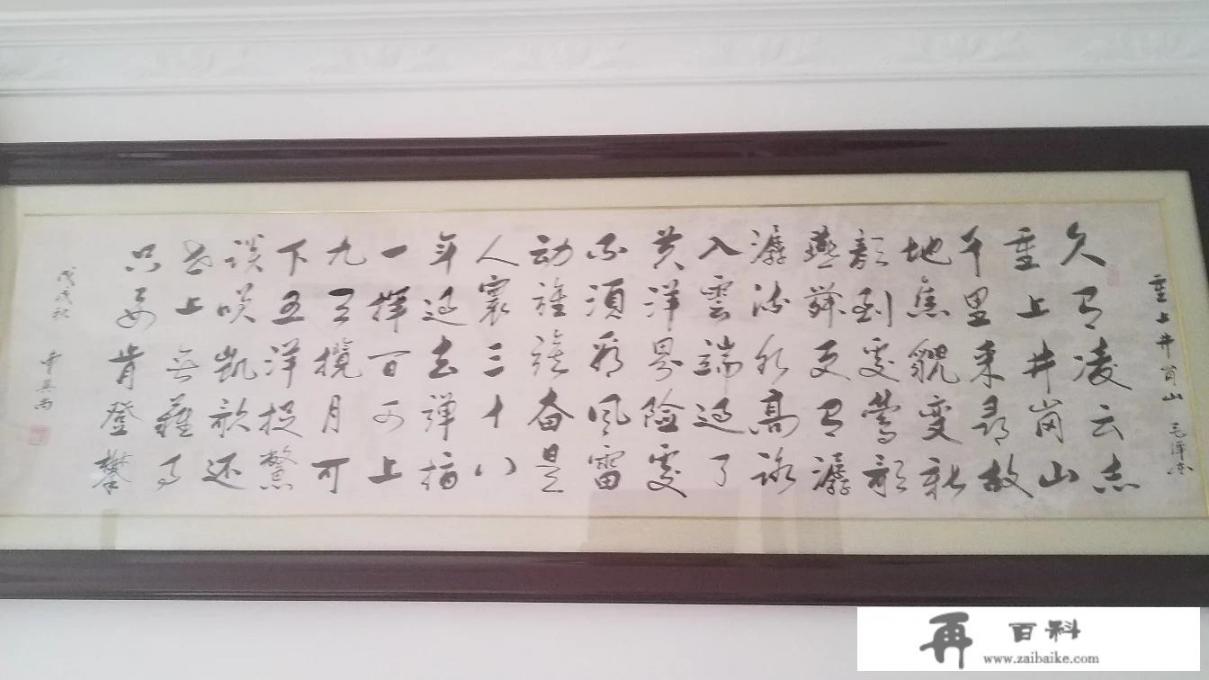 重上井岗山 毛泽东
久有凌云志
重上井岗山
千里来尋故
地舊貌变新
颜到处莺歌
燕舞更有潺
潺流水高路
入雲端过了
黄洋界险处
不須看风雷
动旌旗奋是
人寰三十八
年过去弹指
一挥间可上
九天揽月可
下五洋捉鳖
谈笑凯歌还
世上無難事
只要肯登攀
戊戌秋
再 百科
www.zaibaike.com